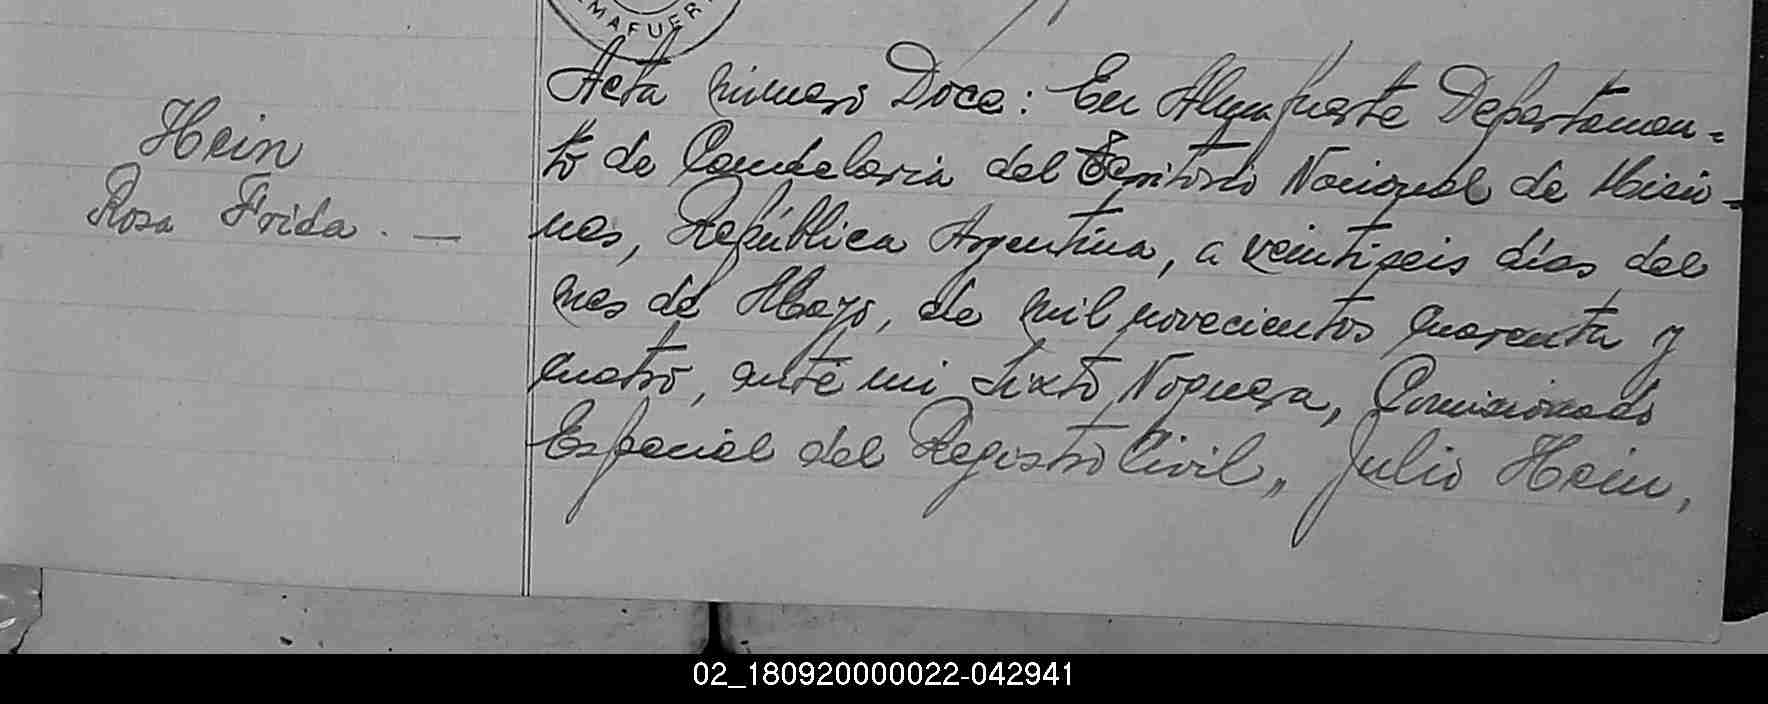 EMAFUER
Acta número Doce: En Almafuerte Departamen=
Hein
Rosa Frida. —
to de Candelaria del Territorio Nacional de Misio=
nes, República Argentina, a veintiseis días del
mes de Mayo, de mil novecientos cuarenta y
cuatro, ante mi Sixto Noguera, Comisionado
Especial del Registro Civil,, Julio Hein,
02_180920000022-042941